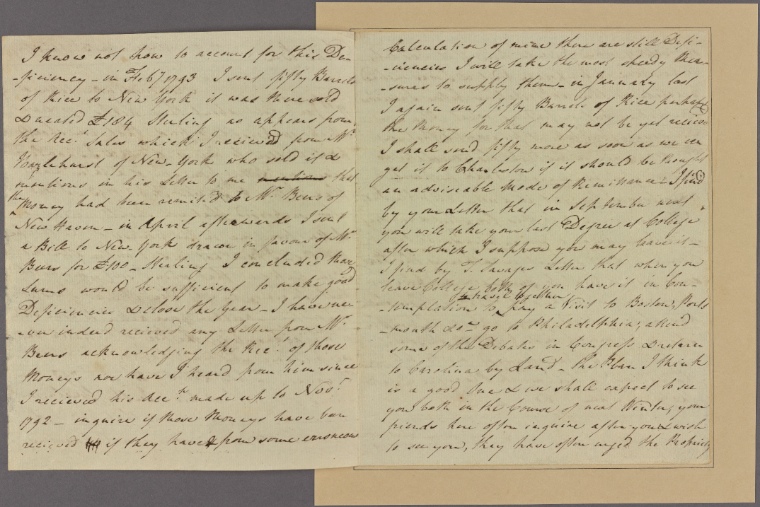 I know not how to account for this De-
-ficiency - in Feb 1793 I sent fifty Barrels
of Rice to New York it was there sold
& neated £184 Sterling as appears from
the Acc.t Sales which I recieved from Mr
of New York who sold it &
mentions in his Letter to me mentions that
the Money had been remitted to Mr. Beers of
New Haven - in April afterwards I sent
a Bill to New York drawn in favour of Mr
Beers for £100 - Sterling I concluded these
Sums would be sufficient to make good
Deficiencies & close the Year - I have nev-
-er indeed recieved any Letter from Mr.
Beers acknowledging the Rec.t of those
Moneys nor have I heard from him since
I recieved his Acc.t made up to Nov.r
1792 - inquire if those Moneys have been
recieved if they have & from some erroneous
Calculation of mine there are still Defi-
-ciencies I will take the most speedy Mea-
-sures to supply them - in January last
I again sent fifty Barrels of Rice perhaps
the Money for that may not be yet recieved
I shall send fifty more as soon as we can
get it to Charleston if it should be thought
an adviseable Mode of Remittance - I find
by your Letter that in September next
you will take your last Degree at College
after which I suppose you may leave it -
I find by T. Savages Letter that when you
leave College both of you have it in Con-
-templation to pay a Visit to Boston, Ports-
-mouth &c.a go to Philadelphia, attend
some of the Debates in Congress & return
to Carolina by Land - the Plan I think
is a good One & we shall expect to see
you both in the Course of next Winter, your
friends here often inquire after you & wish
to see you, they have often urged the Propriety